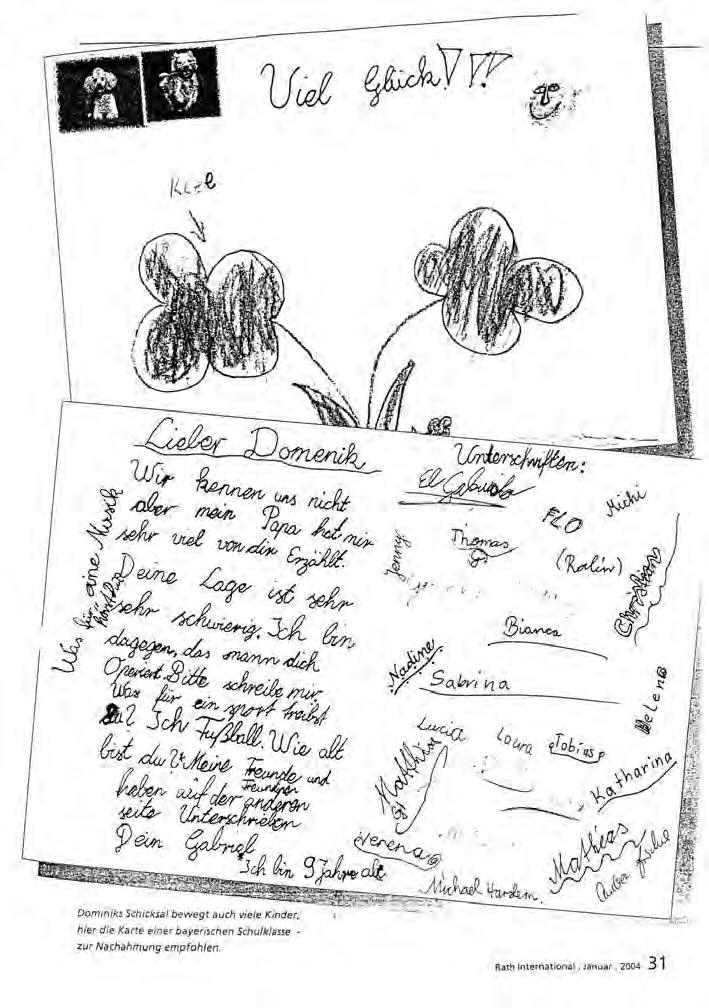 Viel Glück!!!
Klee
Lieber Domenik
Wir kennen uns nicht
aber mein Papa hat mir
sehr viel von dir Erzählt.
Deine Lage ist sehr
sehr schwierig. Ich bin
dagegen, das mann dich
Operiert. Bitte schreibe mir
Was für ein sport treibst
du? Ich Fußball. Wie alt
bist du? Meine Freunde und
Freundinen
haben auf der anderen
seite Unterschrieben
Dein Gabriel
Ich bin 9 Jahre alt
Was für eine Musik
hörst du
Unterschriften:
FLO
Michi
Jenny
Thomas
(Ralin)
Christian
Bianca
Nadine
Sabrina
Helena
Lucia
Laura
Tobias
Matthias
Katharina
Verena
Mathias
Michael
Dominiks Schicksal bewegt auch viele Kinder,
hier die Karte einer bayerischen Schulklasse -
zur Nachahmung empfohlen.
Rath International . Januar . 2004 31